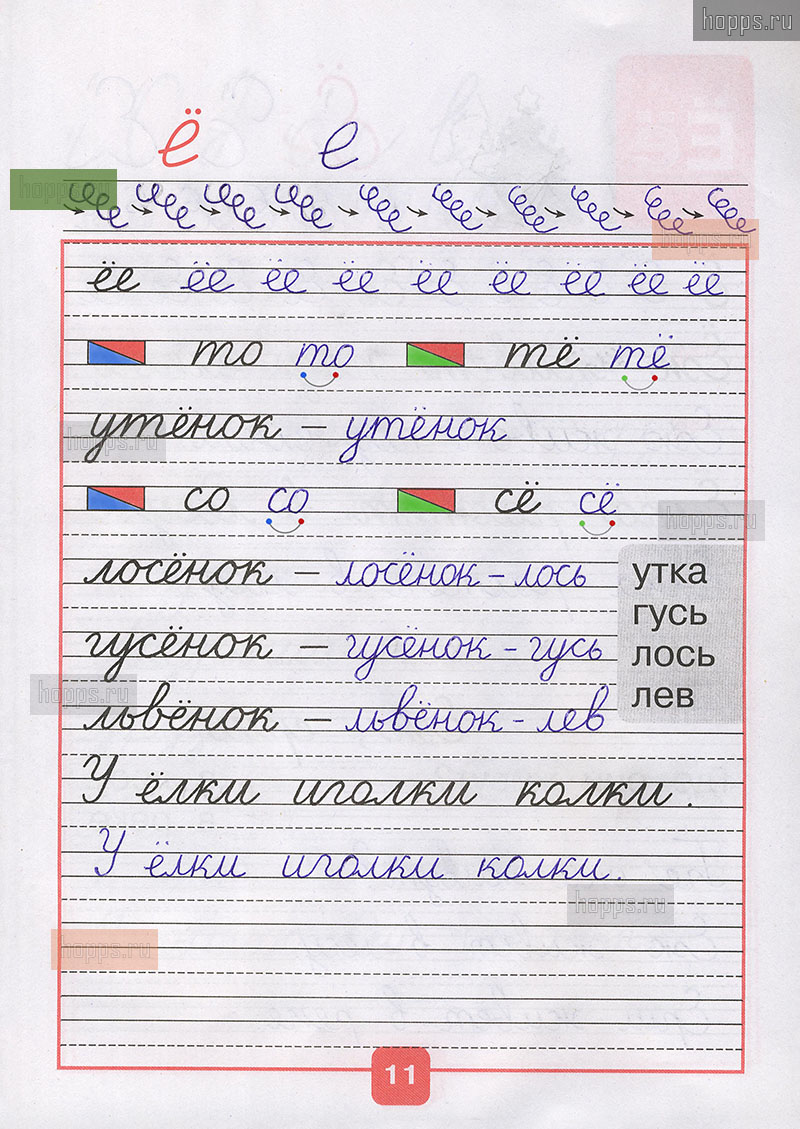 hopps.ru
ё е
hopps.ru
hopps.ru
ёе ёе ёе ёе ёе ёе ёе ёе ёе
то то тё тё
утёнок – утёнок
hopps.ru
со со сё сё
hopps.ru
лосёнок – лосёнок – лось
утка
гусь
лось
лев
гусёнок – гусёнок – гусь
hopps.ru
львёнок – львёнок – лев
У ёлки иголки колки.
У ёлки иголки колки.
hopps.ru
hopps.ru
11